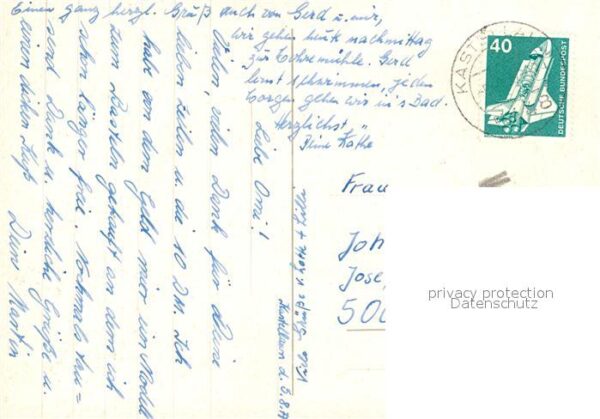 Einen ganz herzl. Gruß auch von Gerd u. mir,
wir gehen heute nachmittag
zur Lohremühle. Gerd
lernt schwimmen, jeden
Morgen gehen wir in's Bad.
Herzlichst"
Deine Käthe
Liebe Omi!
Vielen, vielen Dank für Deine
lieben Zeilen u. die 10 DM. Ich
habe von dem Geld mir ein Modell
zum Basteln gekauft an dem ich
schon länger
send Dank u. herzliche Grüße u.
einen dicken Kuß
Dein Martin
Viele Grüße v. Lotte + Willi
Kastellaun d. 3.8.
KASTELLAUN
40
DEUTSCHE BUNDESPOST
Frau
Joh
Jose
500
privacy protection
Datenschutz